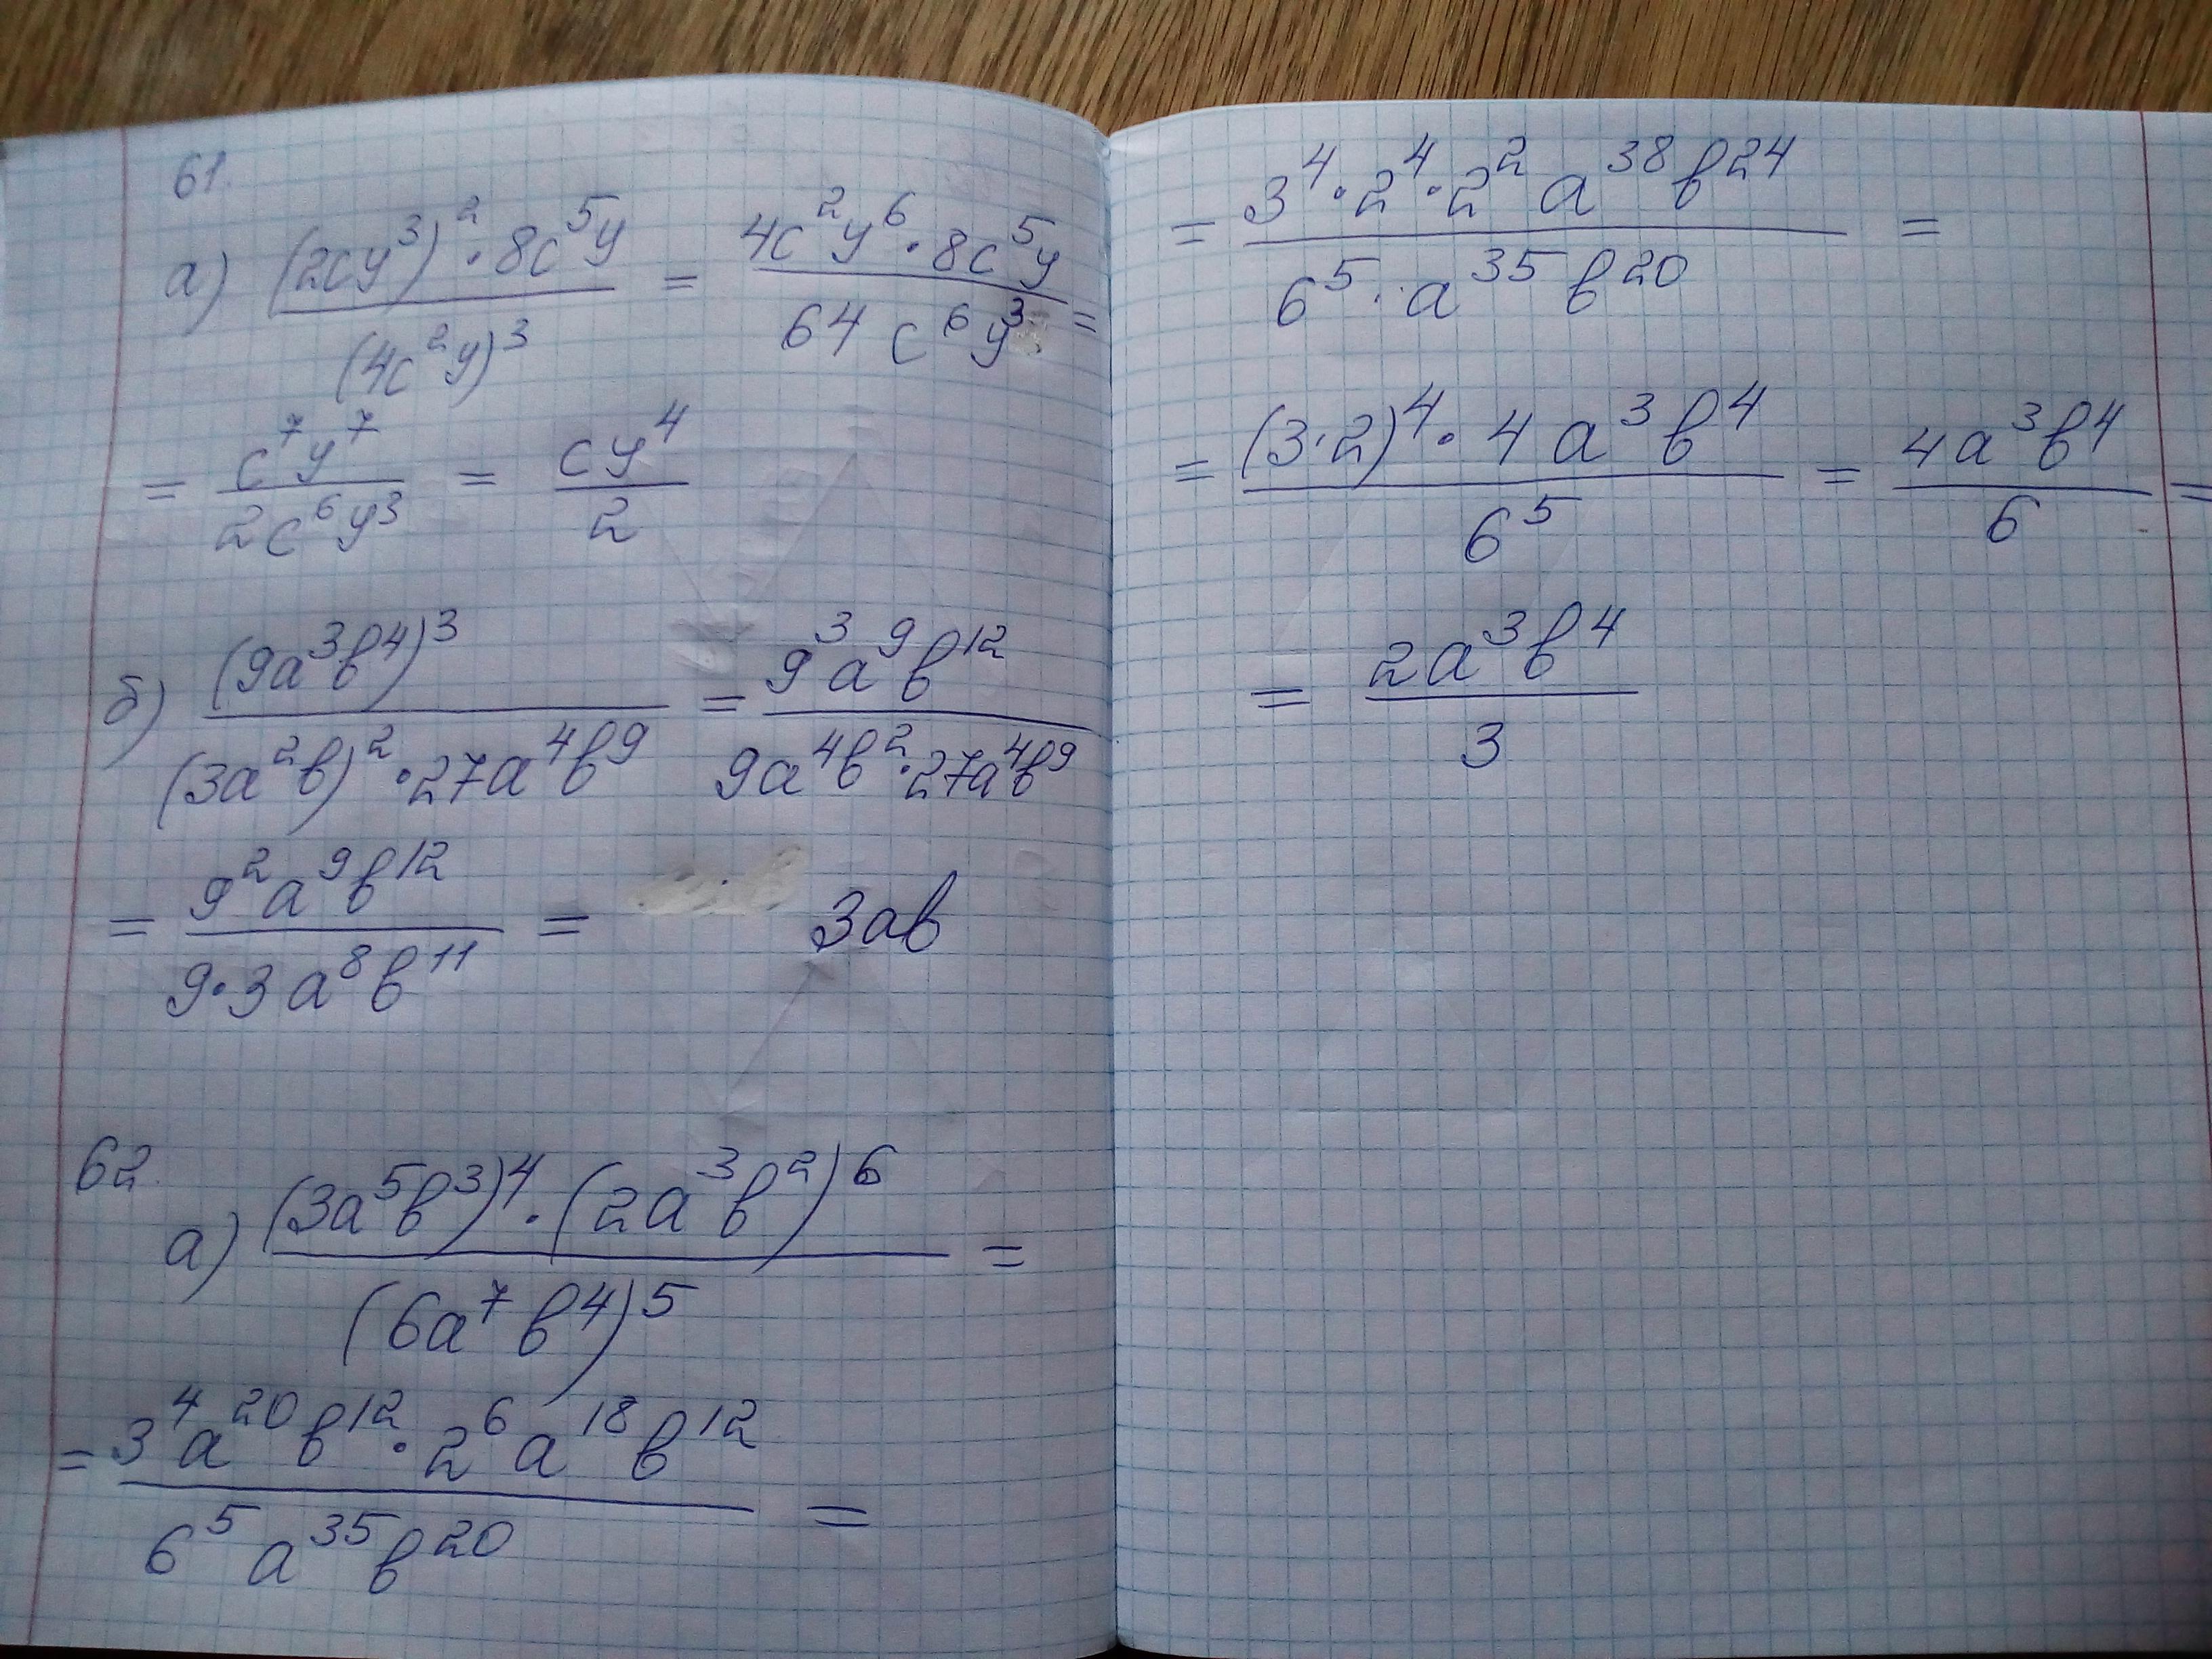 61.
а) (2cy³)² · 8c⁵y / (4c²y)³ = 4c²y⁶ · 8c⁵y / 64 c⁶y³ =
= c⁷y⁷ / 2c⁶y³ = cy⁴ / 2
б) (9a³b⁴)³ / (3a²b)² · 27a⁴b⁹ = 9³a⁹b¹² / 9a⁴b² · 27a⁴b⁹
= 9²a⁹b¹² / 9·3a⁸b¹¹ = 3ab
62.
а) (3a⁵b³)⁴ · (2a³b²)⁶ / (6a⁷b⁴)⁵ =
= 3⁴a²⁰b¹² · 2⁶a¹⁸b¹² / 6⁵a³⁵b²⁰ =
= 3⁴ · 2⁴ · 2² a³⁸b²⁴ / 6⁵ · a³⁵b²⁰ =
= (3·2)⁴ · 4a³b⁴ / 6⁵ = 4a³b⁴ / 6 =
= 2a³b⁴ / 3